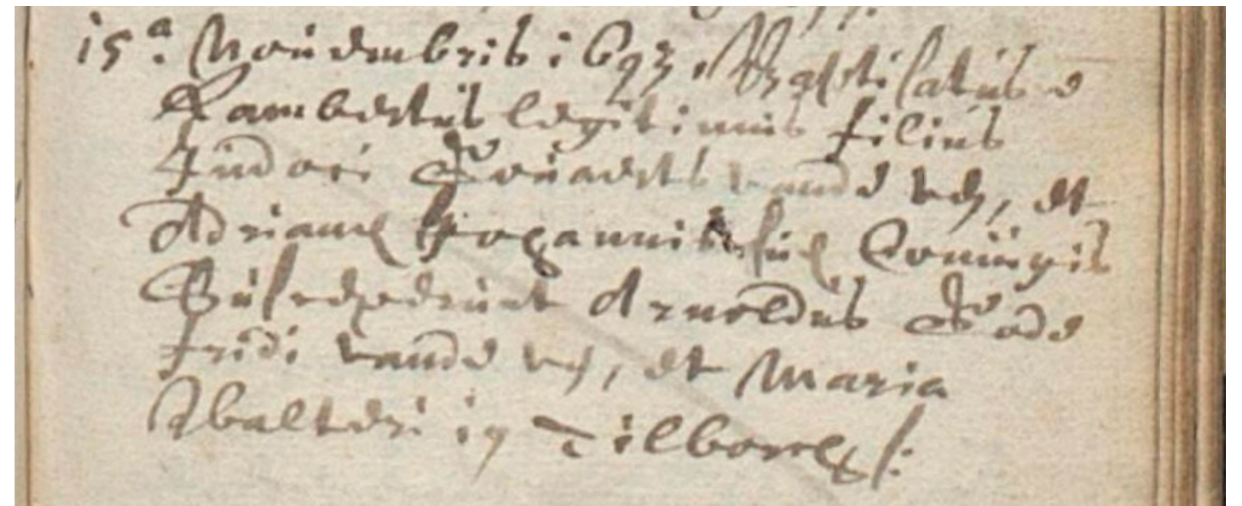 15a: Novembris 1693, Baptisatus e
Lambertus legitimus filius
Judoci Govaerts vande ven, et
Adrianæ Johannis suæ Coniugis
Susceperunt Arnoldus Gode
fridi vande ven, et Maria
Walteri in Tilborch /: